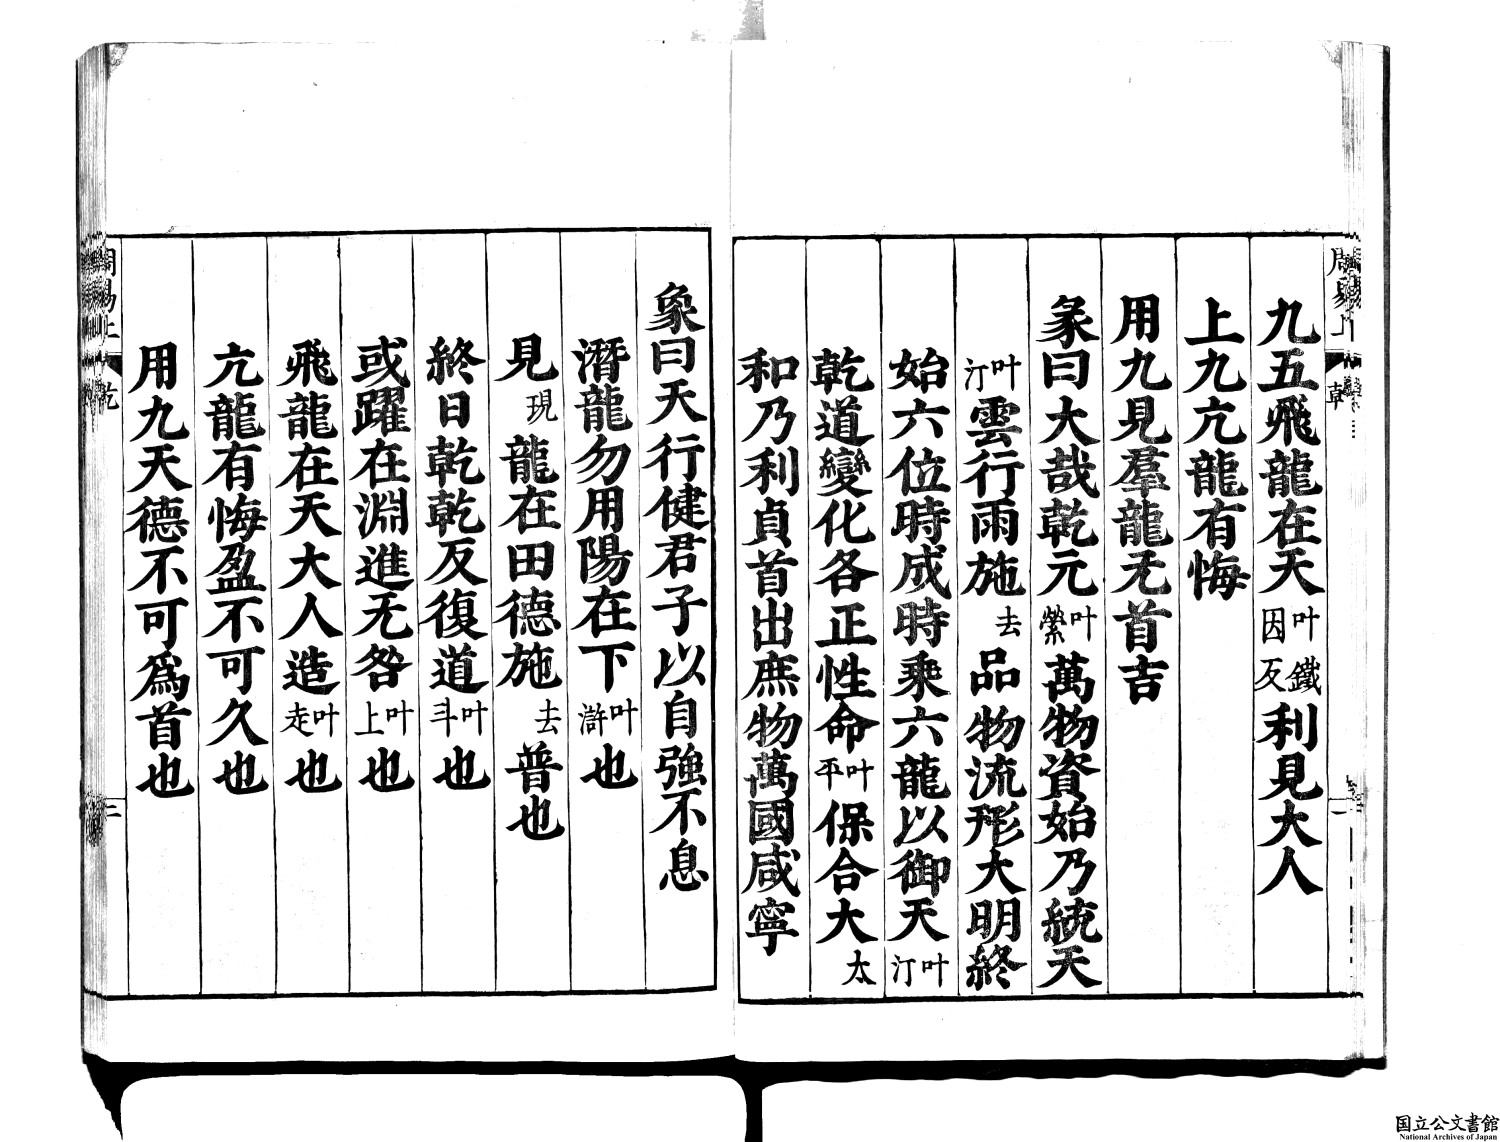 九五飛龍在天叶鐵因反利見大人
上九亢龍有悔
用九見羣龍无首吉
彖曰大哉乾元叶縈萬物資始乃統天
叶汀雲行雨施去品物流形大明終
始六位時成時乘六龍以御天叶汀
乾道變化各正性命叶平保合大太
和乃利貞首出庶物萬國咸寧
象曰天行健君子以自強不息
潛龍勿用陽在下叶滸也
見現龍在田德施去普也
終日乾乾反復道叶斗也
或躍在淵進无咎叶上也
飛龍在天大人造叶走也
亢龍有悔盈不可久也
用九天德不可爲首也
周易上 乾 二
国立公文書館
National Archives of Japan